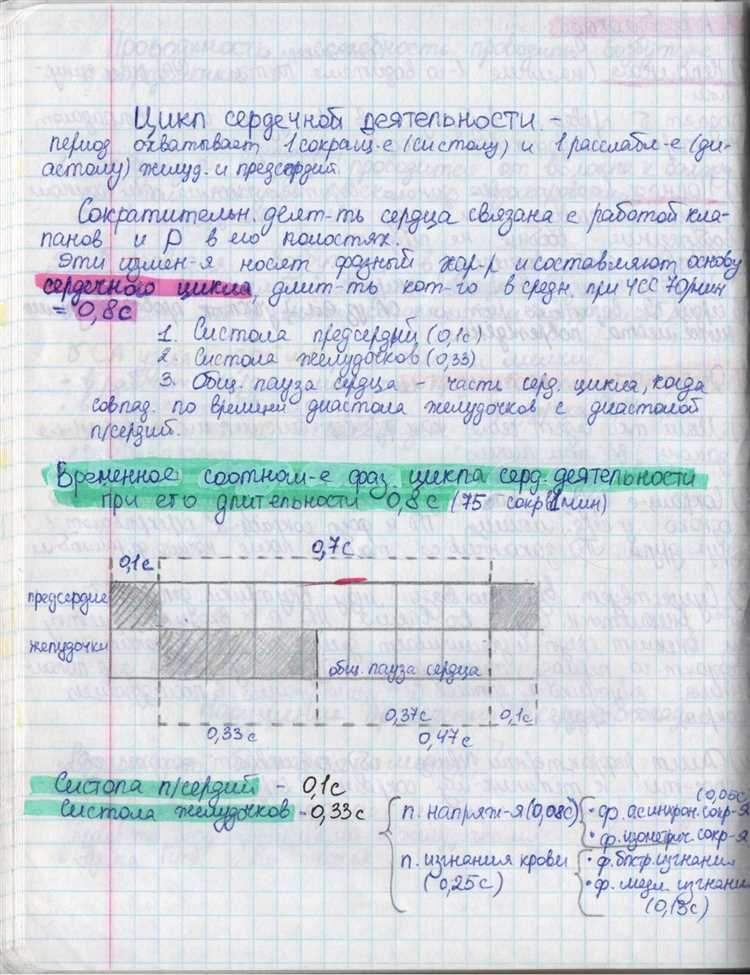 Цикл сердечной деятельности –
период охватывает 1 сокращ-е (систолу) и 1 расслабл-е (ди-
астолу) желуд. и предсердий
Сократительн. деят-ть сердца связана с работой кла-
панов и P в его полостях.
Эти измен-я носят фазный хар-р и составляют основу
сердечного цикла, длит-ть кот-го в средн. при ЧСС 70/мин
= 0,8с
1. Систола предсердий (0,1с)
2. Систола желудочков (0,33)
3. Общ. пауза сердца – части серд. цикла, когда
совпад. по времени диастола желудочков с диастолой
п/сердий.
Временное соотнош-е фаз цикла серд. деятельности
при его длительности 0,8с (75 сокр 1 мин)
0,1с 0,7с
предсердие
желудочки
общ. пауза сердца
0,33с 0,37с 0,1с
0,47с
Систола п/сердий – 0,1с
Систола желудочков – 0,33с
п. напряж-я (0,08с)
(0,05с)
• ф. асинхрон. сокр-я
• ф. изометрич. сокр-я
п. изгнания крови
(0,25с)
• ф. быстр. изгнания
• ф. медл. изгнания
(0,13с)